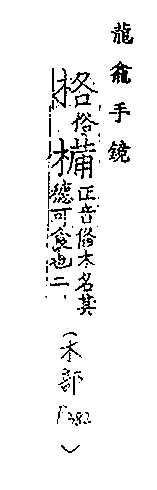 龍龕手鏡
俗
正音備木名其
可食也二
(木部
P382)